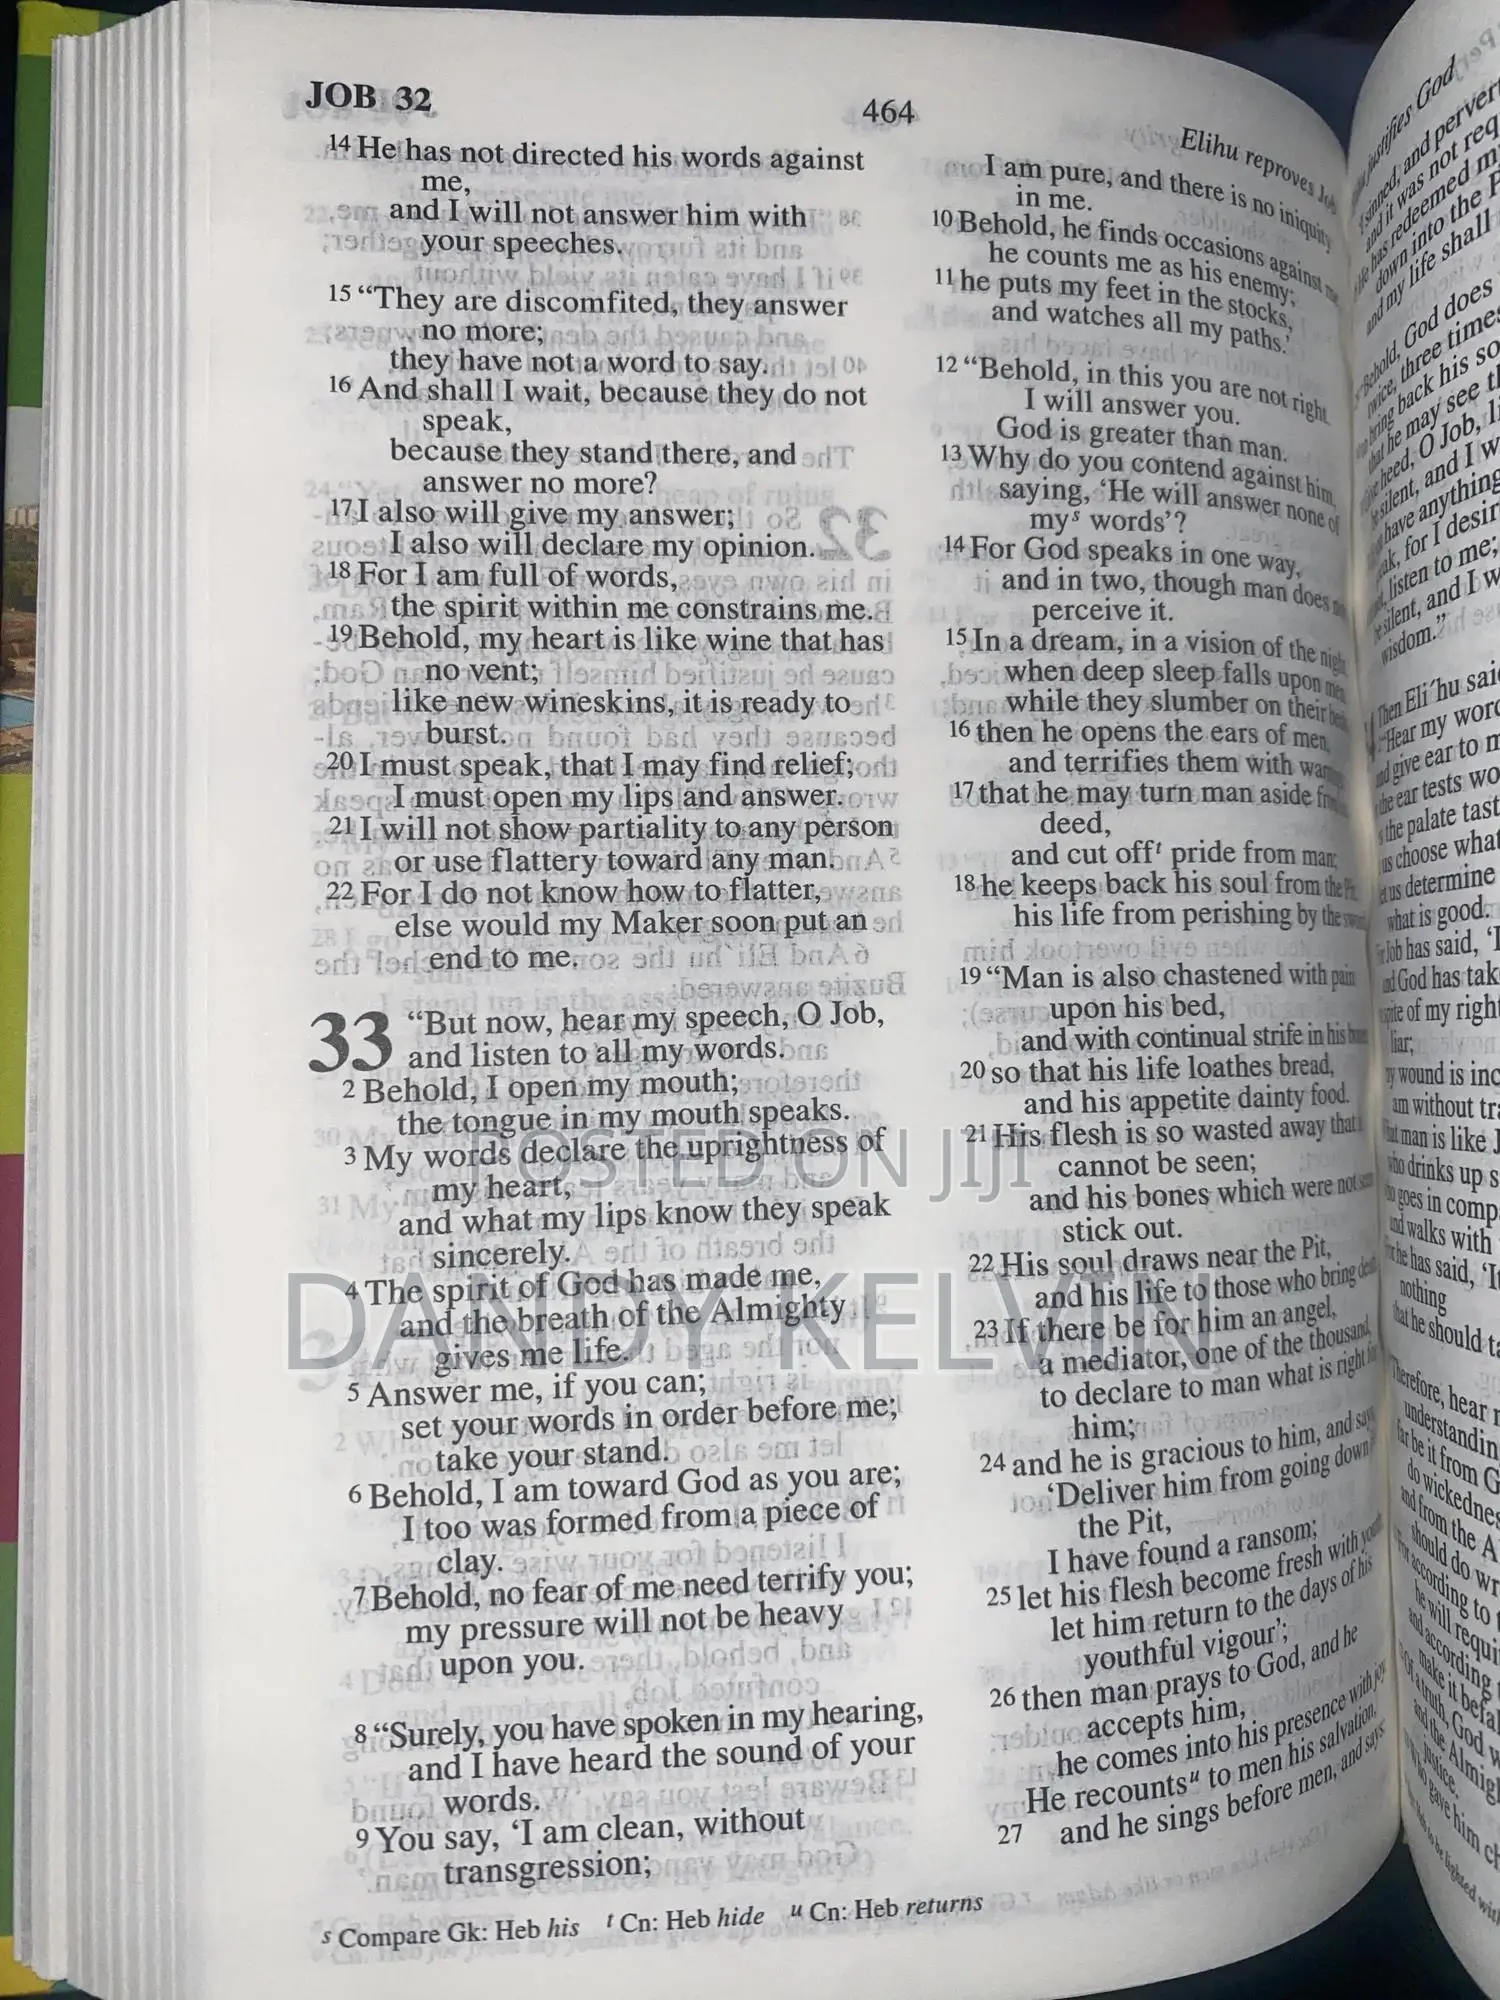 JOB 32
464
Elihu reproves Job
14 He has not directed his words against
me,
and I will not answer him with
your speeches.
15 “They are discomfited, they answer
no more;
they have not a word to say.
16 And shall I wait, because they do not
speak,
because they stand there, and
answer no more?
17 I also will give my answer;
I also will declare my opinion.
18 For I am full of words,
the spirit within me constrains me.
19 Behold, my heart is like wine that has
no vent;
like new wineskins, it is ready to
burst.
20 I must speak, that I may find relief;
I must open my lips and answer.
21 I will not show partiality to any person
or use flattery toward any man.
22 For I do not know how to flatter,
else would my Maker soon put an
end to me.
33 “But now, hear my speech, O Job,
and listen to all my words.
2 Behold, I open my mouth;
the tongue in my mouth speaks.
3 My words declare the uprightness of
my heart,
and what my lips know they speak
sincerely.
4 The spirit of God has made me,
and the breath of the Almighty
gives me life.
5 Answer me, if you can;
set your words in order before me;
take your stand.
6 Behold, I am toward God as you are;
I too was formed from a piece of
clay.
7 Behold, no fear of me need terrify you;
my pressure will not be heavy
upon you.
8 “Surely, you have spoken in my hearing,
and I have heard the sound of your
words.
9 You say, ‘I am clean, without
transgression;
I am pure, and there is no iniquity
in me.
10 Behold, he finds occasions against me,
he counts me as his enemy;
11 he puts my feet in the stocks,
and watches all my paths.’
12 “Behold, in this you are not right.
I will answer you.
God is greater than man.
13 Why do you contend against him,
saying, ‘He will answer none of
my s words’?
14 For God speaks in one way,
and in two, though man does not
perceive it.
15 In a dream, in a vision of the night,
when deep sleep falls upon men,
while they slumber on their beds,
16 then he opens the ears of men,
and terrifies them with
17 that he may turn man aside from
deed,
and cut off t pride from man;
18 he keeps back his soul from the Pit,
his life from perishing by the sword.
19 “Man is also chastened with pain
upon his bed,
and with continual strife in his bones
20 so that his life loathes bread,
and his appetite dainty food.
21 His flesh is so wasted away that
cannot be seen;
and his bones which were not seen
stick out.
22 His soul draws near the Pit,
and his life to those who bring death.
23 If there be for him an angel,
a mediator, one of the thousand,
to declare to man what is right for
him;
24 and he is gracious to him, and says,
‘Deliver him from going down
the Pit,
I have found a ransom;
25 let his flesh become fresh with youth;
let him return to the days of his
youthful vigour’;
26 then man prays to God, and he
accepts him,
he comes into his presence with joy.
He recounts u to men his salvation,
27 and he sings before men, and says:
s Compare Gk: Heb his t Cn: Heb hide u Cn: Heb returns
justifies God
sinned, and
and it was not
He has redeemed
down into the
and my life shall
“Behold, God does
twice, three times
bring back his
that he may see
heed, O Job,
silent, and I
have anything
for I desire
listen to me;
silent, and I
wisdom.”
Then Eli´hu
“Hear my
and give ear to
the ear tests
the palate
choose what
us determine
what is good.
Job has said,
and God has
of my right
liar;
my wound is
am without
man is like
who drinks up
goes in
and walks with
he has said,
nothing
that he should
Therefore, hear
far be it from
do
and from the
should do
according to
he will
and according
make it
Of a truth, God
and the
justice.
Who gave him
POSTED ON JIJI
DANDY KELVIN